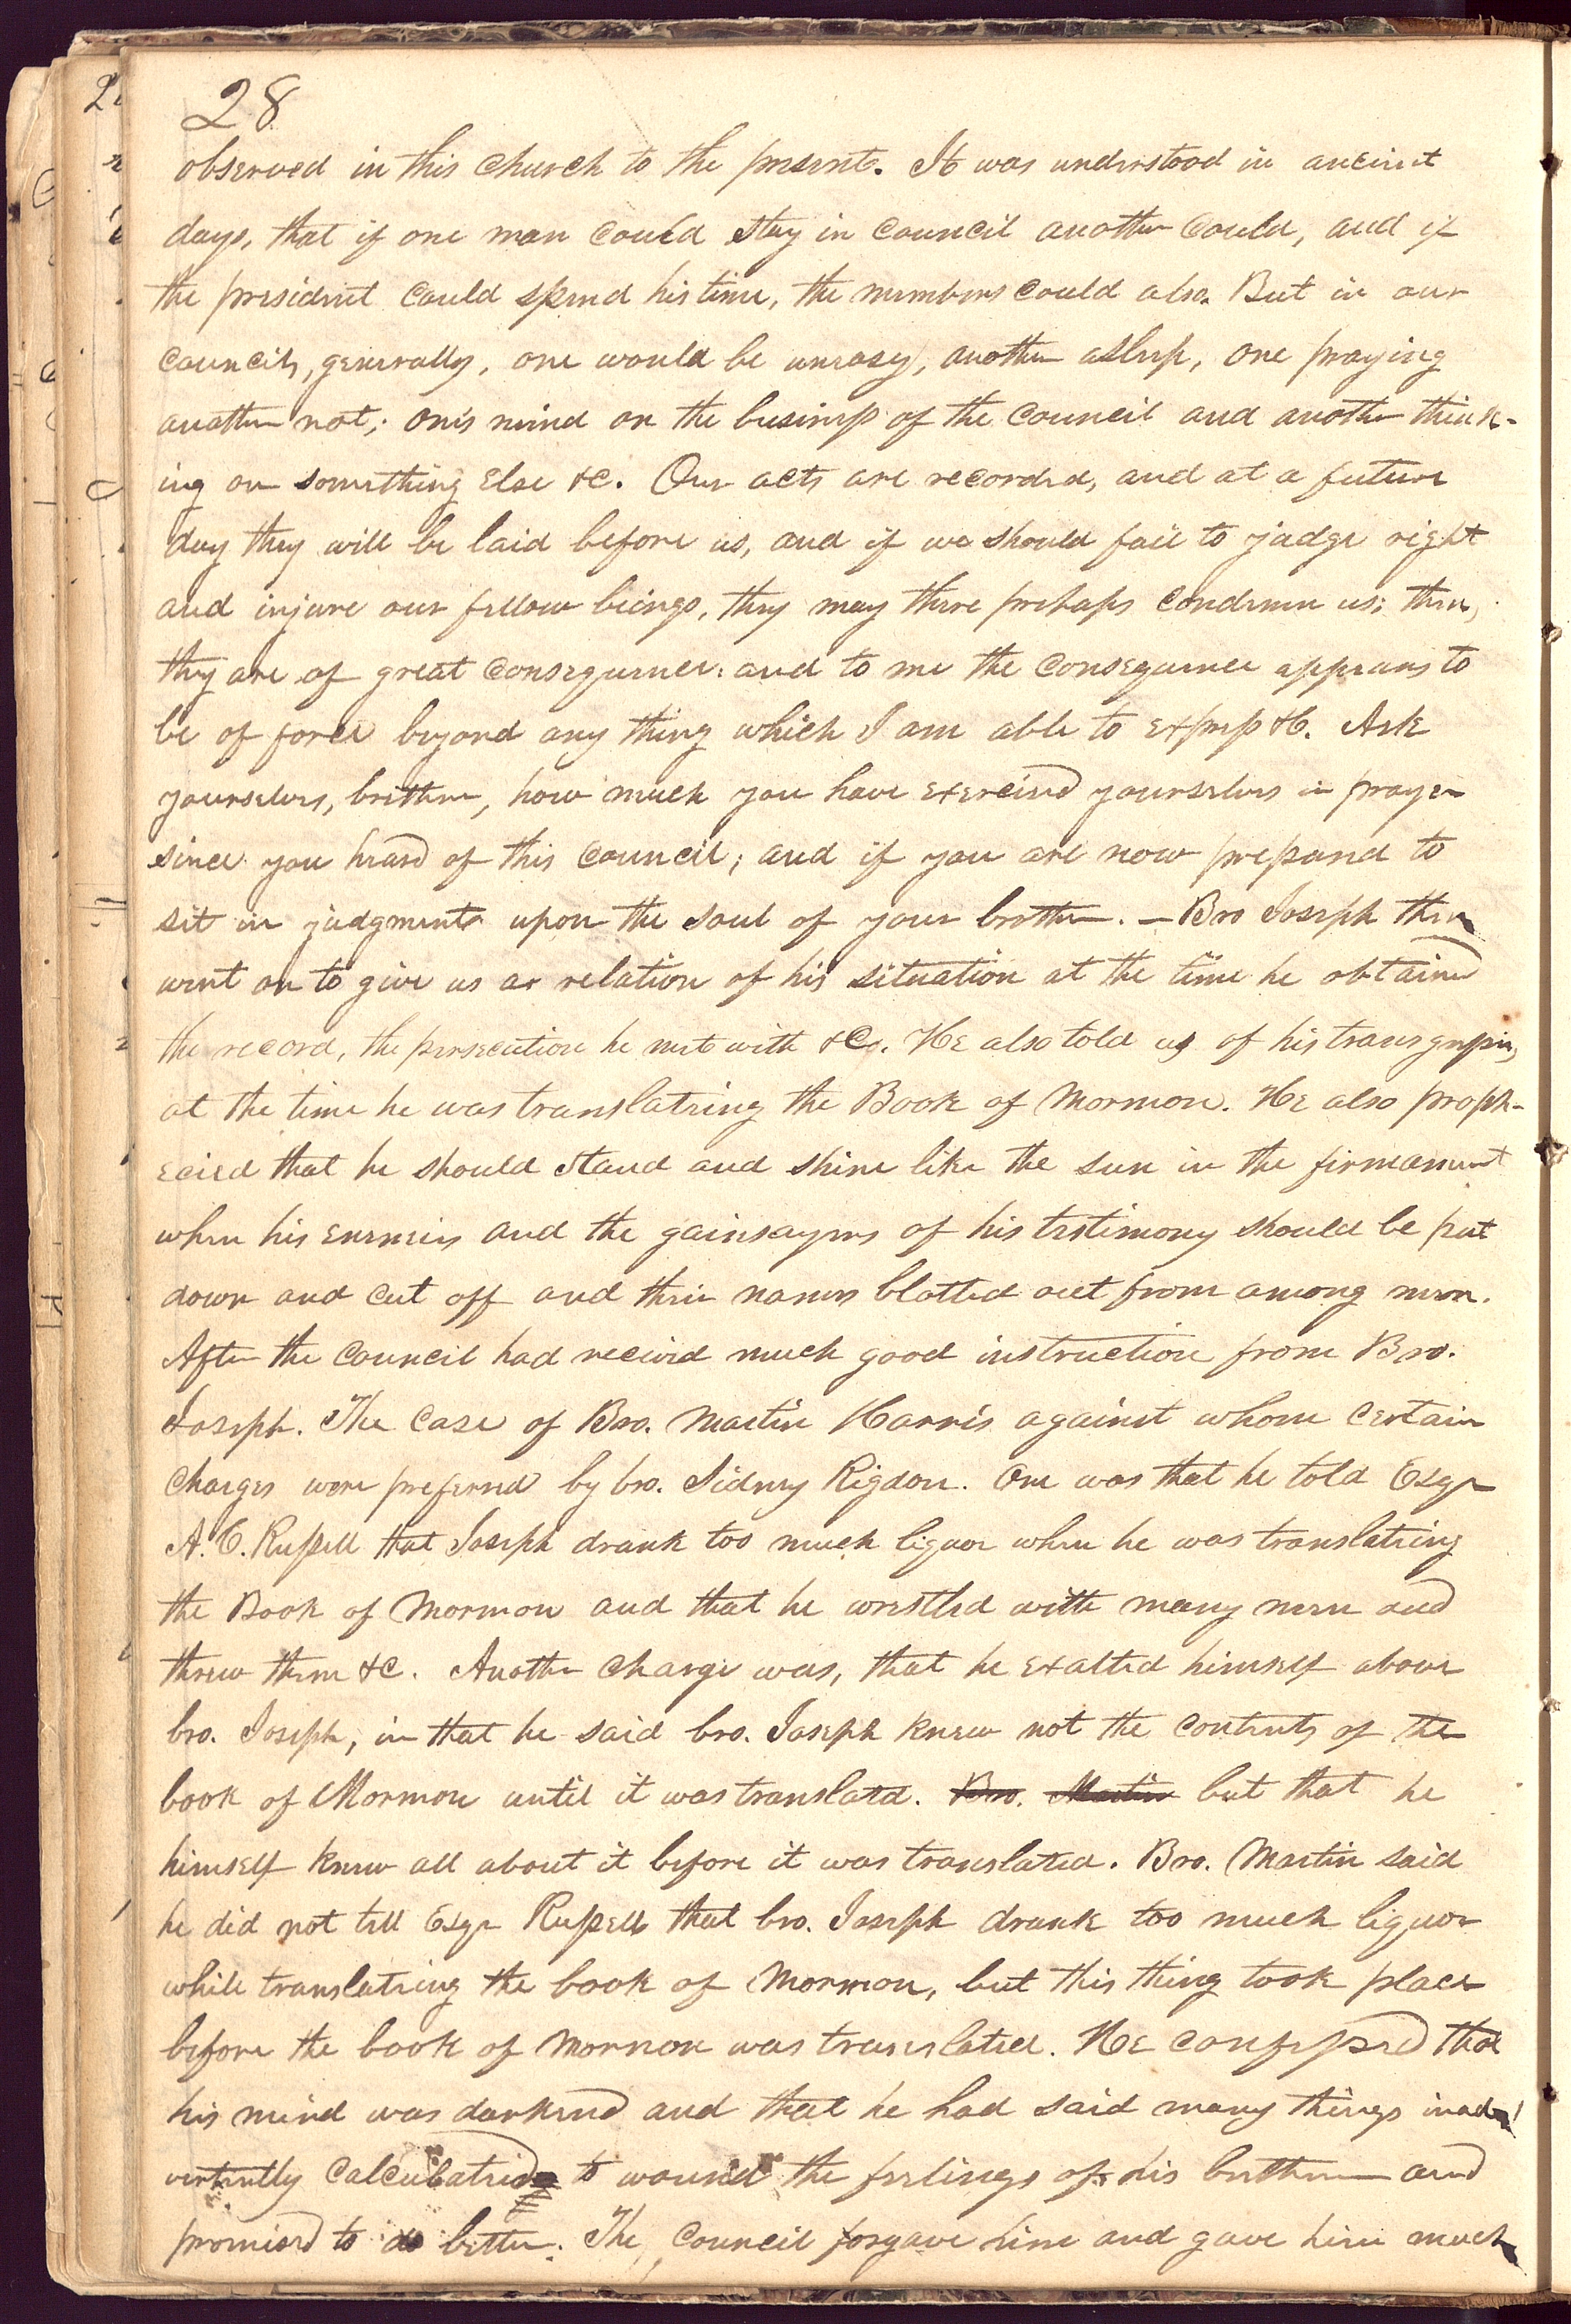 28
observed in this church to the present. It was understood in ancient
days, that if one man could stay in council another could, and if
the president could spend his time, the members could also. But in our
councils, generally, one would be uneasy, another asleep, one praying
another not; one's mind on the business of the council and another think-
ing on something else &c. Our acts are recorded, and at a future
day they will be laid before us, and if we should fail to judge right
and injure our fellow beings, they may there perhaps condemn us; then,
they are of great consequence: and to me the consequence appears to
be of force beyond any thing which I am able to express &c. Ask
yourselves, brethren, how much you have exercised yourselves in prayer
since you heard of this council; and if you are now prepared to
sit in judgment upon the soul of your brother. — Bro Joseph then
went on to give us a relation of his situation at the time he obtained
the record, the persecution he met with &c. He also told us of his transgression,
at the time he was translating the Book of Mormon. He also proph-
ecied that he should stand and shine like the sun in the firmament
when his enemies and the gainsayers of his testimony should be put
down and cut off and their names blotted out from among men.
After the council had received much good instruction from Bro.
Joseph. The case of Bro. Martin Harris against whom certain
charges were prefered by bro. Sidney Rigdon. One was that he told Esqr
A. C. Russell that Joseph drank too much liquor when he was translating
the Book of Mormon and that he wrestled with many men and
threw them &c. Another charge was, that he exalted himself above
bro. Joseph, in that he said bro. Joseph knew not the contents of the
book of Mormon until it was translated. Bro. Martin but that he
himself knew all about it before it was translated. Bro. Martin said
he did not tell Esqr Russell that bro. Joseph drank too much liquor
while translating the book of Mormon, but this thing took place
before the book of Mormon was translated. He confessed that
his mind was darkened and that he had said many things inad-
vertently calculated to wound the feelings of his brethren and
promised to do better. The council forgave him and gave him much